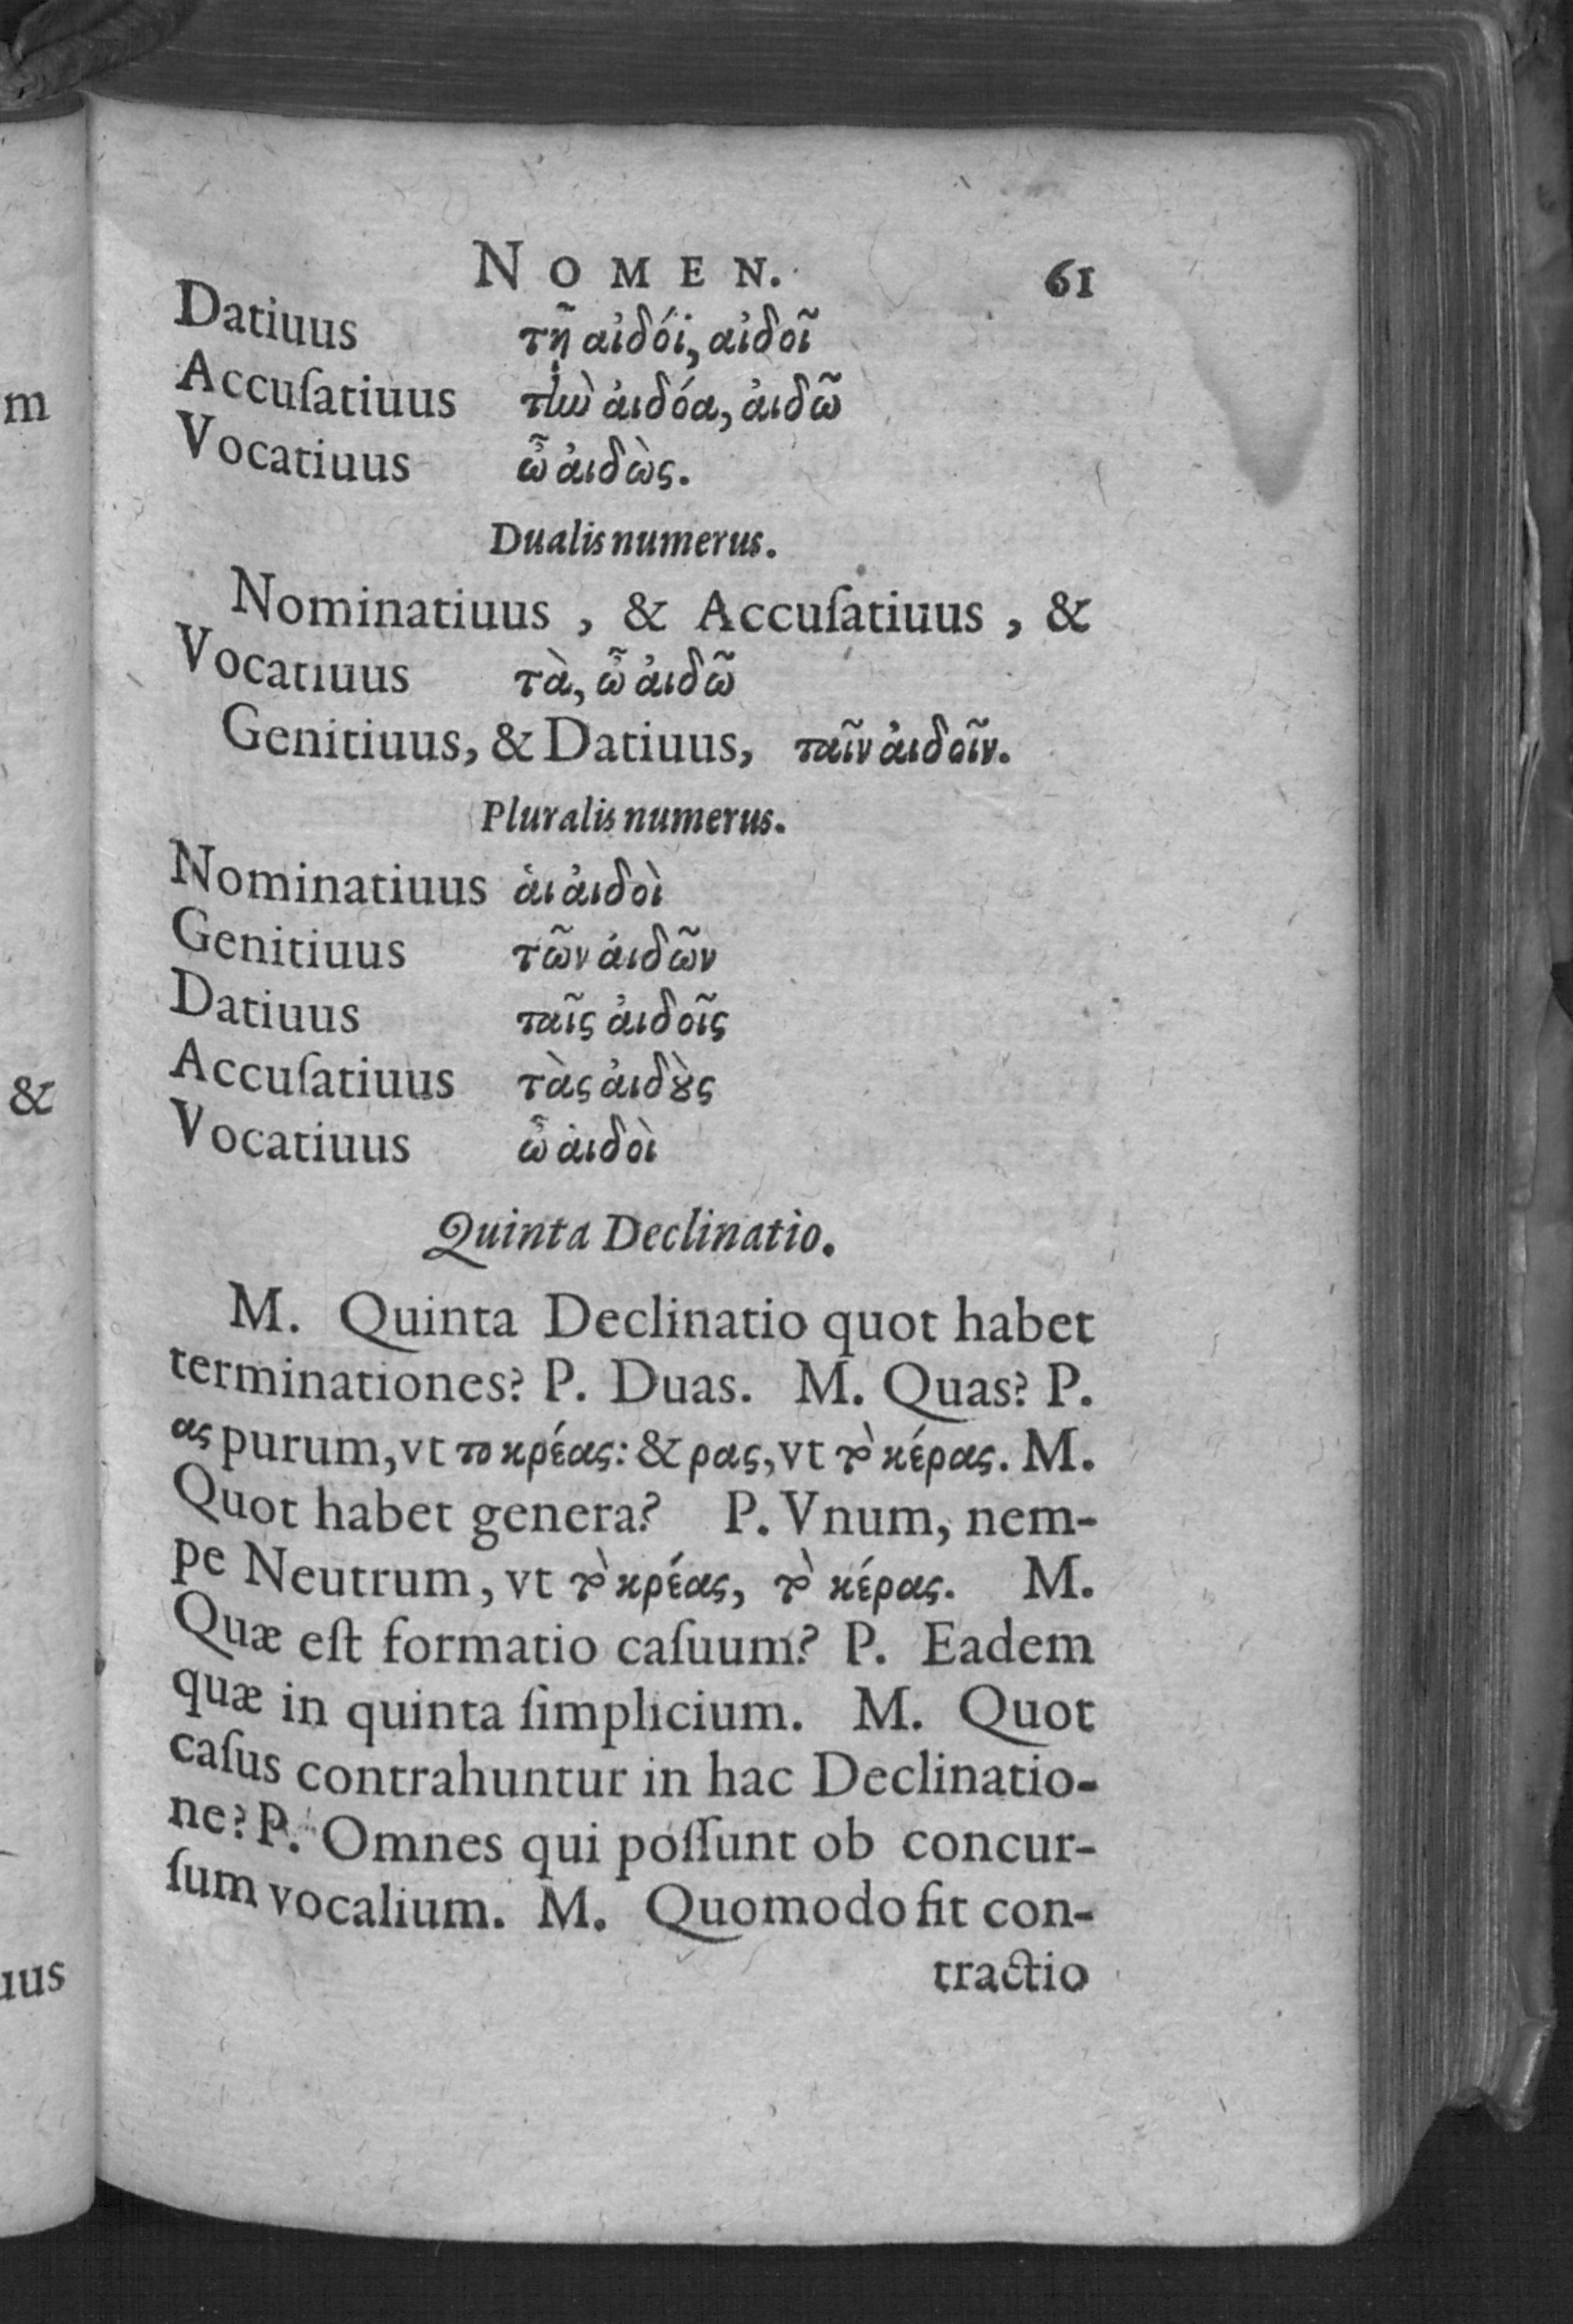 NOMEN. 61
Datiuus τῇ αἰδόϊ, αἰδοῖ
Accuſatiuus τὴν ἀιδόα, ἀιδῶ
Vocatiuus ὦ ἀιδὼς.
Dualis numerus.
Nominatiuus , & Accuſatiuus , &
Vocatiuus τὰ, ὦ ἀιδῶ
Genitiuus, & Datiuus, ταῖν ἀιδοῖν.
Pluralis numerus.
Nominatiuus ἁι ἀιδοὶ
Genitiuus τῶν ἀιδῶν
Datiuus ταῖς ἀιδοῖς
Accuſatiuus τὰς ἀιδȣ̀ς
Vocatiuus ὦ ἀιδοὶ
Quinta Declinatio.
M. Quinta Declinatio quot habet
terminationes? P. Duas. M. Quas? P.
ας purum, vt το κρέας: & ρας, vt τὸ κέρας. M.
Quot habet genera? P. Vnum, nem-
pe Neutrum, vt τὸ κρέας, τὸ κέρας. M.
Quæ eſt formatio caſuum? P. Eadem
quæ in quinta ſimplicium. M. Quot
caſus contrahuntur in hac Declinatio-
ne? P. Omnes qui poſſunt ob concur-
ſum vocalium. M. Quomodo fit con-
tractio
m
&
uus